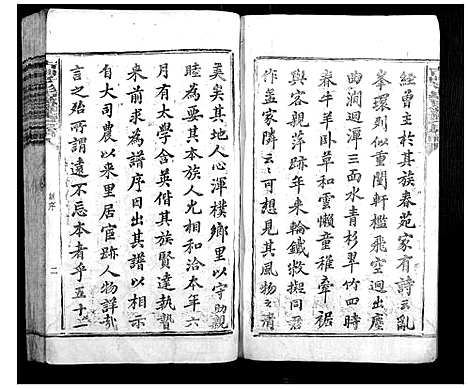 經曾主於其族春苑家有詩云亂
峯環列似重闉軒檻飛空迥出塵
曲澗迴潭三面水青杉翠竹四時
春牛羊臥草和雲懶童稚牽裾
與客親萍跡年來輪鐵敝擬同
作孟家隣云云可想見其風物之清
美矣其地人心渾樸鄉里以守助親
睦為要其本族人尤相和洽本年六
月有太學含英偕其族賢達執贄
來前求為譜序因出其譜以相示
自大司農以來里居官跡人物詳哉
言之殆所謂遠不忘本者乎五十一
序
二